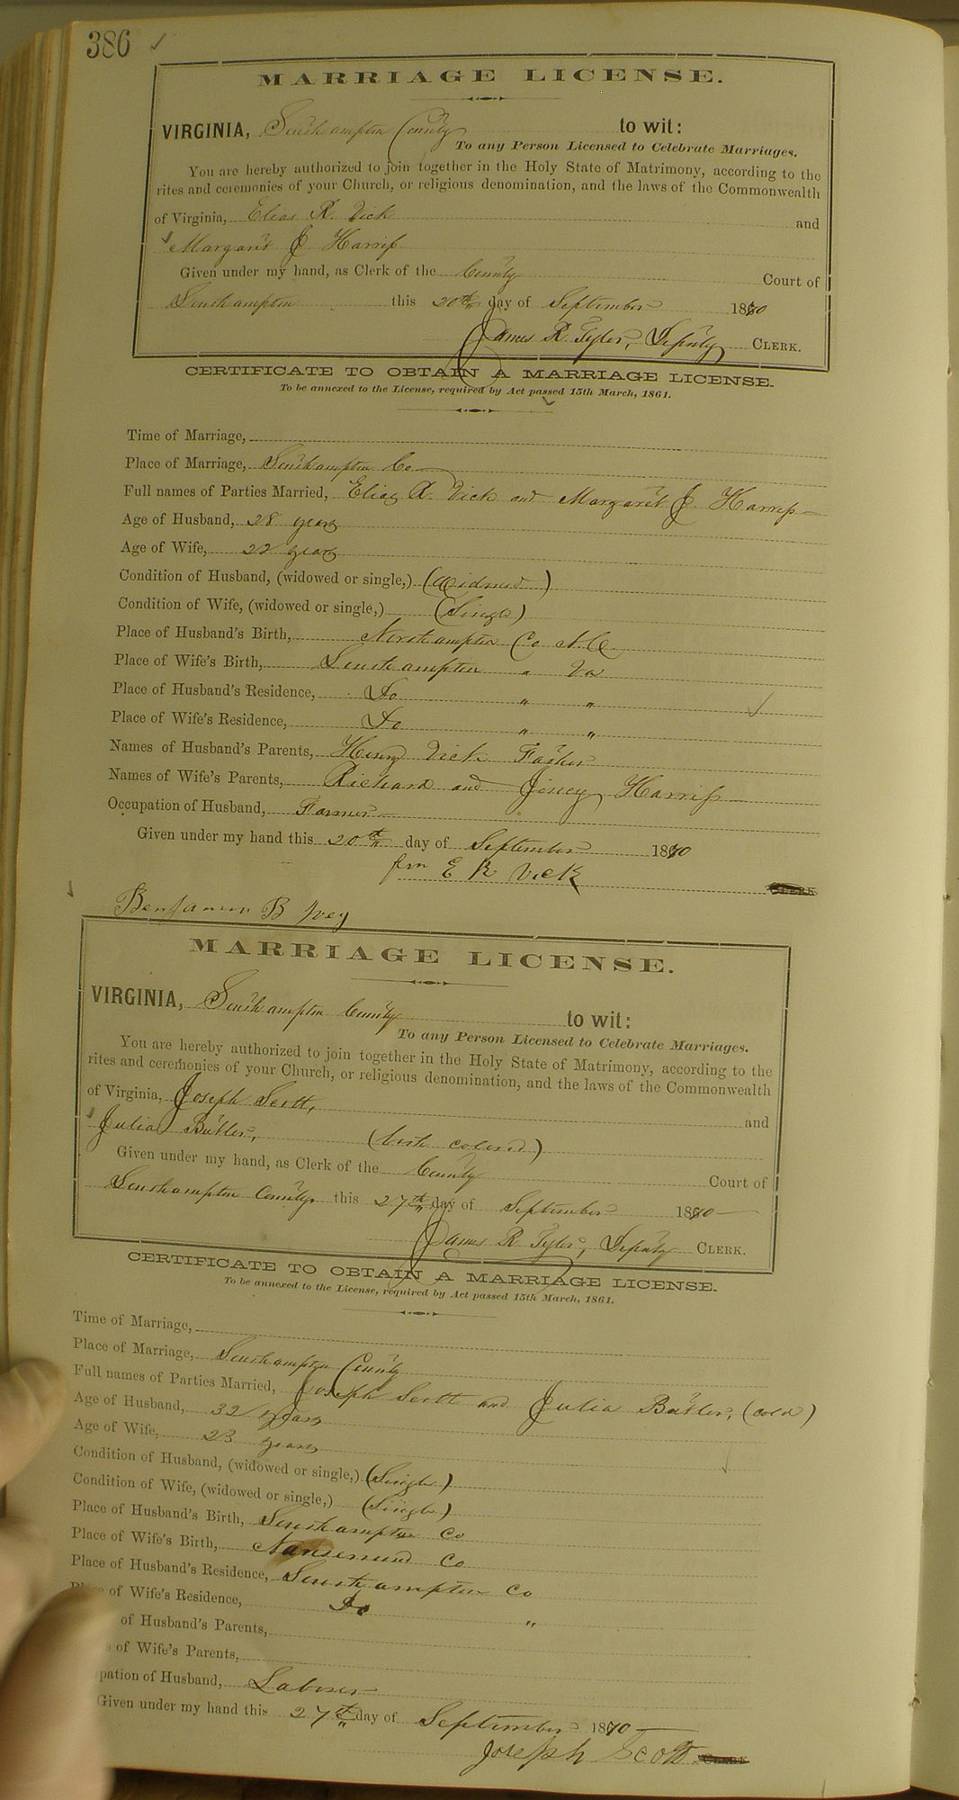 386 ✓
MARRIAGE LICENSE.
VIRGINIA, Southampton County to wit:
To any Person Licensed to Celebrate Marriages.
You are hereby authorized to join together in the Holy State of Matrimony, according to the
rites and ceremonies of your Church, or religious denomination, and the laws of the Commonwealth
of Virginia, Elias R. Vick and
Margaret J Harriss
Given under my hand, as Clerk of the County Court of
Southampton this 20th day of September 1870
James R. Tyler, Deputy CLERK.
CERTIFICATE TO OBTAIN A MARRIAGE LICENSE.
To be annexed to the License, required by Act passed 15th March, 1861.
Time of Marriage,
Place of Marriage, Southampton Co
Full names of Parties Married, Elias R. Vick and Margaret J Harriss
Age of Husband, 28 years
Age of Wife, 22 years
Condition of Husband, (widowed or single,) (Widowed)
Condition of Wife, (widowed or single,) (Single)
Place of Husband's Birth, Northampton Co N.C.
Place of Wife's Birth, Southampton " Va
Place of Husband's Residence, Do " "
Place of Wife's Residence, Do " "
Names of Husband's Parents, Henry Vick Father
Names of Wife's Parents, Richard and Jincy Harriss
Occupation of Husband, Farmer
Given under my hand this 20th day of September 1870
E R Vick CLERK
Benjamin B Ivey
MARRIAGE LICENSE.
VIRGINIA, Southampton County to wit:
To any Person Licensed to Celebrate Marriages.
You are hereby authorized to join together in the Holy State of Matrimony, according to the
rites and ceremonies of your Church, or religious denomination, and the laws of the Commonwealth
of Virginia, Joseph Scott, and
Julia Butler, (both colored)
Given under my hand, as Clerk of the County Court of
Southampton County this 27th day of September 1870
James R. Tyler, Deputy CLERK.
CERTIFICATE TO OBTAIN A MARRIAGE LICENSE.
To be annexed to the License, required by Act passed 15th March, 1861.
Time of Marriage,
Place of Marriage, Southampton County
Full names of Parties Married, Joseph Scott and Julia Butler, (cold)
Age of Husband, 32 years
Age of Wife, 23 years
Condition of Husband, (widowed or single,) (Single)
Condition of Wife, (widowed or single,) (Single)
Place of Husband's Birth, Southampton Co
Place of Wife's Birth, Nansemond Co
Place of Husband's Residence, Southampton Co
of Wife's Residence, Do "
of Husband's Parents,
of Wife's Parents,
pation of Husband, Laborer
Given under my hand this 27th day of September 1870
Joseph Scott CLERK